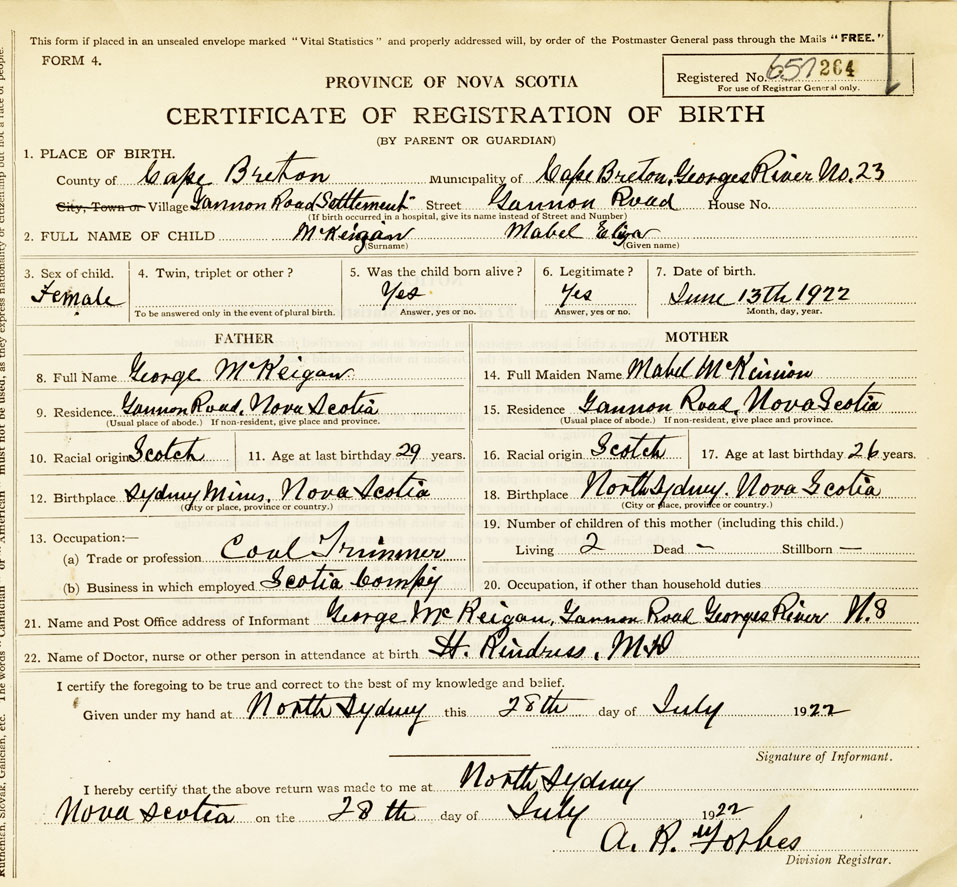 This form if placed in an unsealed envelope marked "Vital Statistics" and properly addressed will, by order of the Postmaster General pass through the Mails "FREE."
FORM 4.
Registered No. 657 264
For use of Registrar General only.
PROVINCE OF NOVA SCOTIA
CERTIFICATE OF REGISTRATION OF BIRTH
(BY PARENT OR GUARDIAN)
1. PLACE OF BIRTH.
County of Cape Breton Municipality of Cape Breton, Georges River No. 23
City, Town or Village Gannon Road Settlement Street Gannon Road House No.
(If birth occurred in a hospital, give its name instead of Street and Number)
2. FULL NAME OF CHILD McKeigan Mabel Eliza
(Surname) (Given name)
3. Sex of child. 4. Twin, triplet or other? 5. Was the child born alive? 6. Legitimate? 7. Date of birth.
Female Yes Yes June 13th 1922
To be answered only in the event of plural birth. Answer, yes or no. Answer, yes or no. Month, day, year.
FATHER MOTHER
8. Full Name George McKeigan 14. Full Maiden Name Mabel McKinnon
9. Residence. Gannon Road, Nova Scotia 15. Residence Gannon Road, Nova Scotia
(Usual place of abode.) If non-resident, give place and province. (Usual place of abode.) If non-resident, give place and province.
10. Racial origin Scotch 11. Age at last birthday 29 years. 16. Racial origin Scotch 17. Age at last birthday 26 years.
12. Birthplace Sydney Mines, Nova Scotia 18. Birthplace North Sydney. Nova Scotia
(City or place, province or country.) (City or place, province or country.)
13. Occupation:— 19. Number of children of this mother (including this child.)
(a) Trade or profession Coal Trimmer Living 2 Dead – Stillborn —
(b) Business in which employed Scotia Compy 20. Occupation, if other than household duties
21. Name and Post Office address of Informant George McKeigan, Gannon Road Georges River N.S
22. Name of Doctor, nurse or other person in attendance at birth H. Rindress, MD
I certify the foregoing to be true and correct to the best of my knowledge and belief.
Given under my hand at North Sydney this 28th day of July 1922
Signature of Informant.
I hereby certify that the above return was made to me at North Sydney
Nova Scotia on the 28th day of July 1922
A. R. Forbes
Division Registrar.